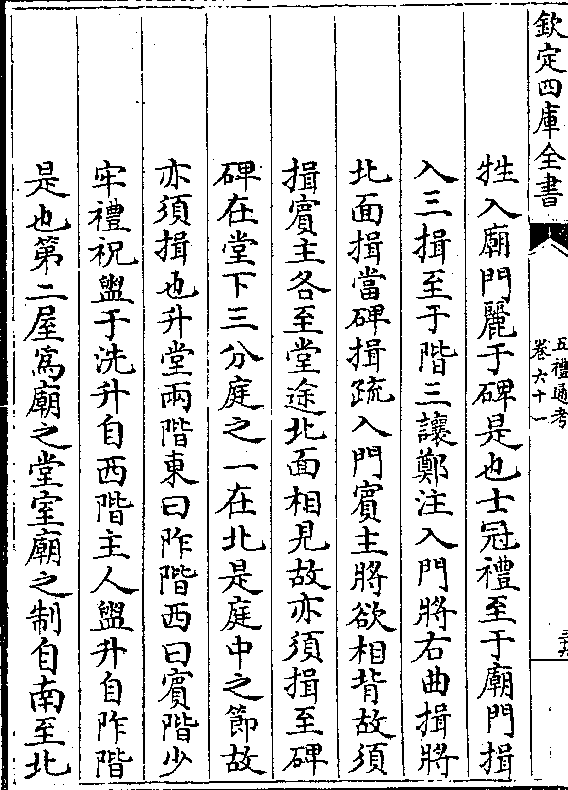 欽定四庫全書
五禮通考
卷六十一
牲入廟門麗于碑是也士冠禮至于廟門揖
入三揖至于階三讓鄭注入門將右曲揖將
北面揖當碑揖疏入門賓主將欲相背故須
揖賓主各至堂途北面相見故亦須揖至碑
碑在堂下三分庭之一在北是庭中之節故
亦須揖也升堂兩階東曰阼階西曰賓階少
牢禮祝盥于洗升自西階主人盥升自阼階
是也第二屋為廟之堂室廟之制自南至北